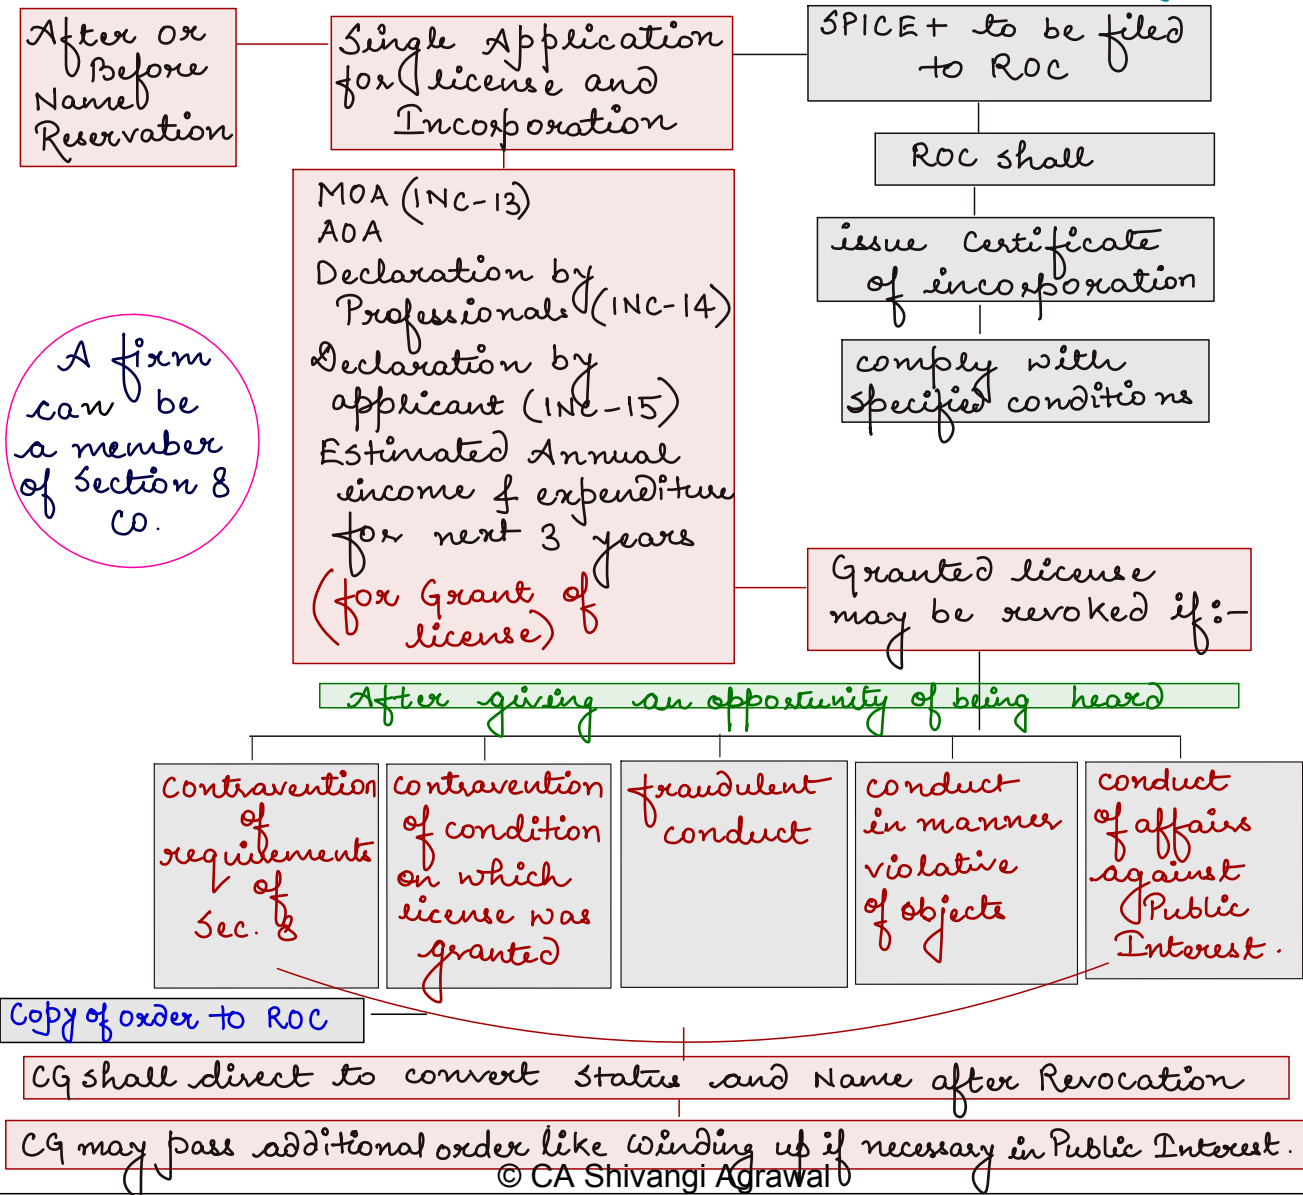 After or
Before
Name
Reservation
Single Application
for license and
Incorporation
SPICE+ to be filed
to ROC
ROC shall
issue Certificate
of incorporation
comply with
specified conditions
MOA (INC-13)
AOA
Declaration by
Professionals (INC-14)
Declaration by
applicant (INC-15)
Estimated Annual
income & expenditure
for next 3 years
(for Grant of
license)
A firm
can be
a member
of Section 8
CO.
Granted license
may be revoked if:-
After giving an opportunity of being heard
Contravention
of
requirements
of
Sec. 8
contravention
of condition
on which
license was
granted
fraudulent
conduct
conduct
in manner
violative
of objects
conduct
of affairs
against
Public
Interest.
Copy of order to ROC
CG shall direct to convert Status and Name after Revocation
CG may pass additional order like Winding up if necessary in Public Interest.
© CA Shivangi Agrawal